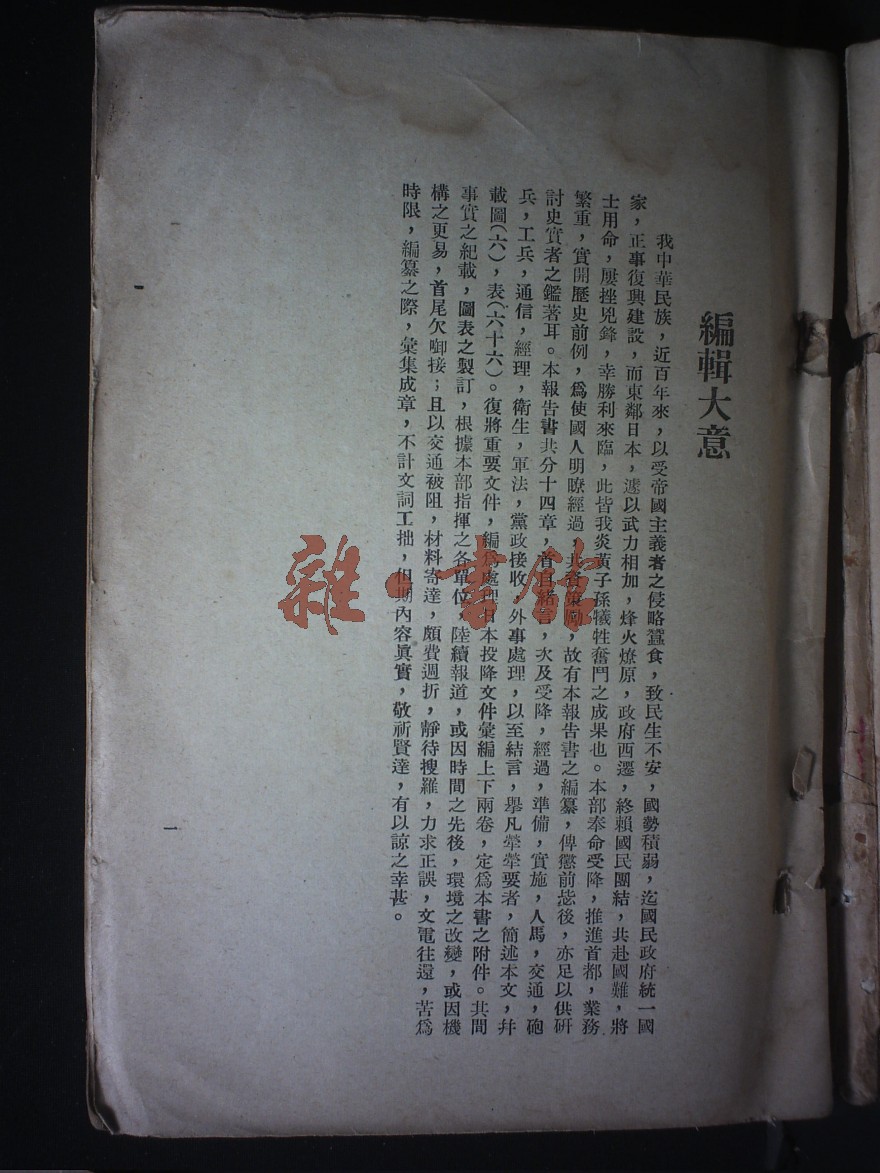 編輯大意
我中華民族，近百年來，以受帝國主義者之侵略蠶食，致民生不安，國勢積弱，迄國民政府統一國
家，正事復興建設，而東鄰日本，遽以武力相加，烽火燎原，政府西遷，終賴國民團結，共赴國難，將
士用命，屢挫兇鋒，幸勝利來臨，此皆我炎黃子孫犧牲奮鬥之成果也。本部奉命受降，推進首都，業務
繁重，實開歷史前例，爲使國人明瞭經過，共資策勵，故有本報告書之編纂，俾懲前毖後，亦足以供研
討史實者之鑑著耳。本報告書共分十四章，首自緒言，次及受降，經過，準備，實施，人馬，交通，砲
兵，工兵，通信，經理，衛生，軍法，黨政接收，外事處理，以至結言，舉凡犖犖要者，簡述本文，幷
載圖(六)，表(六十六)。復將重要文件，編爲處理日本投降文件彙編上下兩卷，定爲本書之附件。共間
事實之紀載，圖表之製訂，根據本部指揮之各單位，陸續報道，或因時間之先後，環境之改變，或因機
構之更易，首尾欠啣接；且以交通被阻，材料寄達，頗費週折，靜待搜羅，力求正誤，文電往還，苦爲
時限，編纂之際，彙集成章，不計文詞工拙，但期內容眞實，敬祈賢達，有以諒之幸甚。
雜·書館